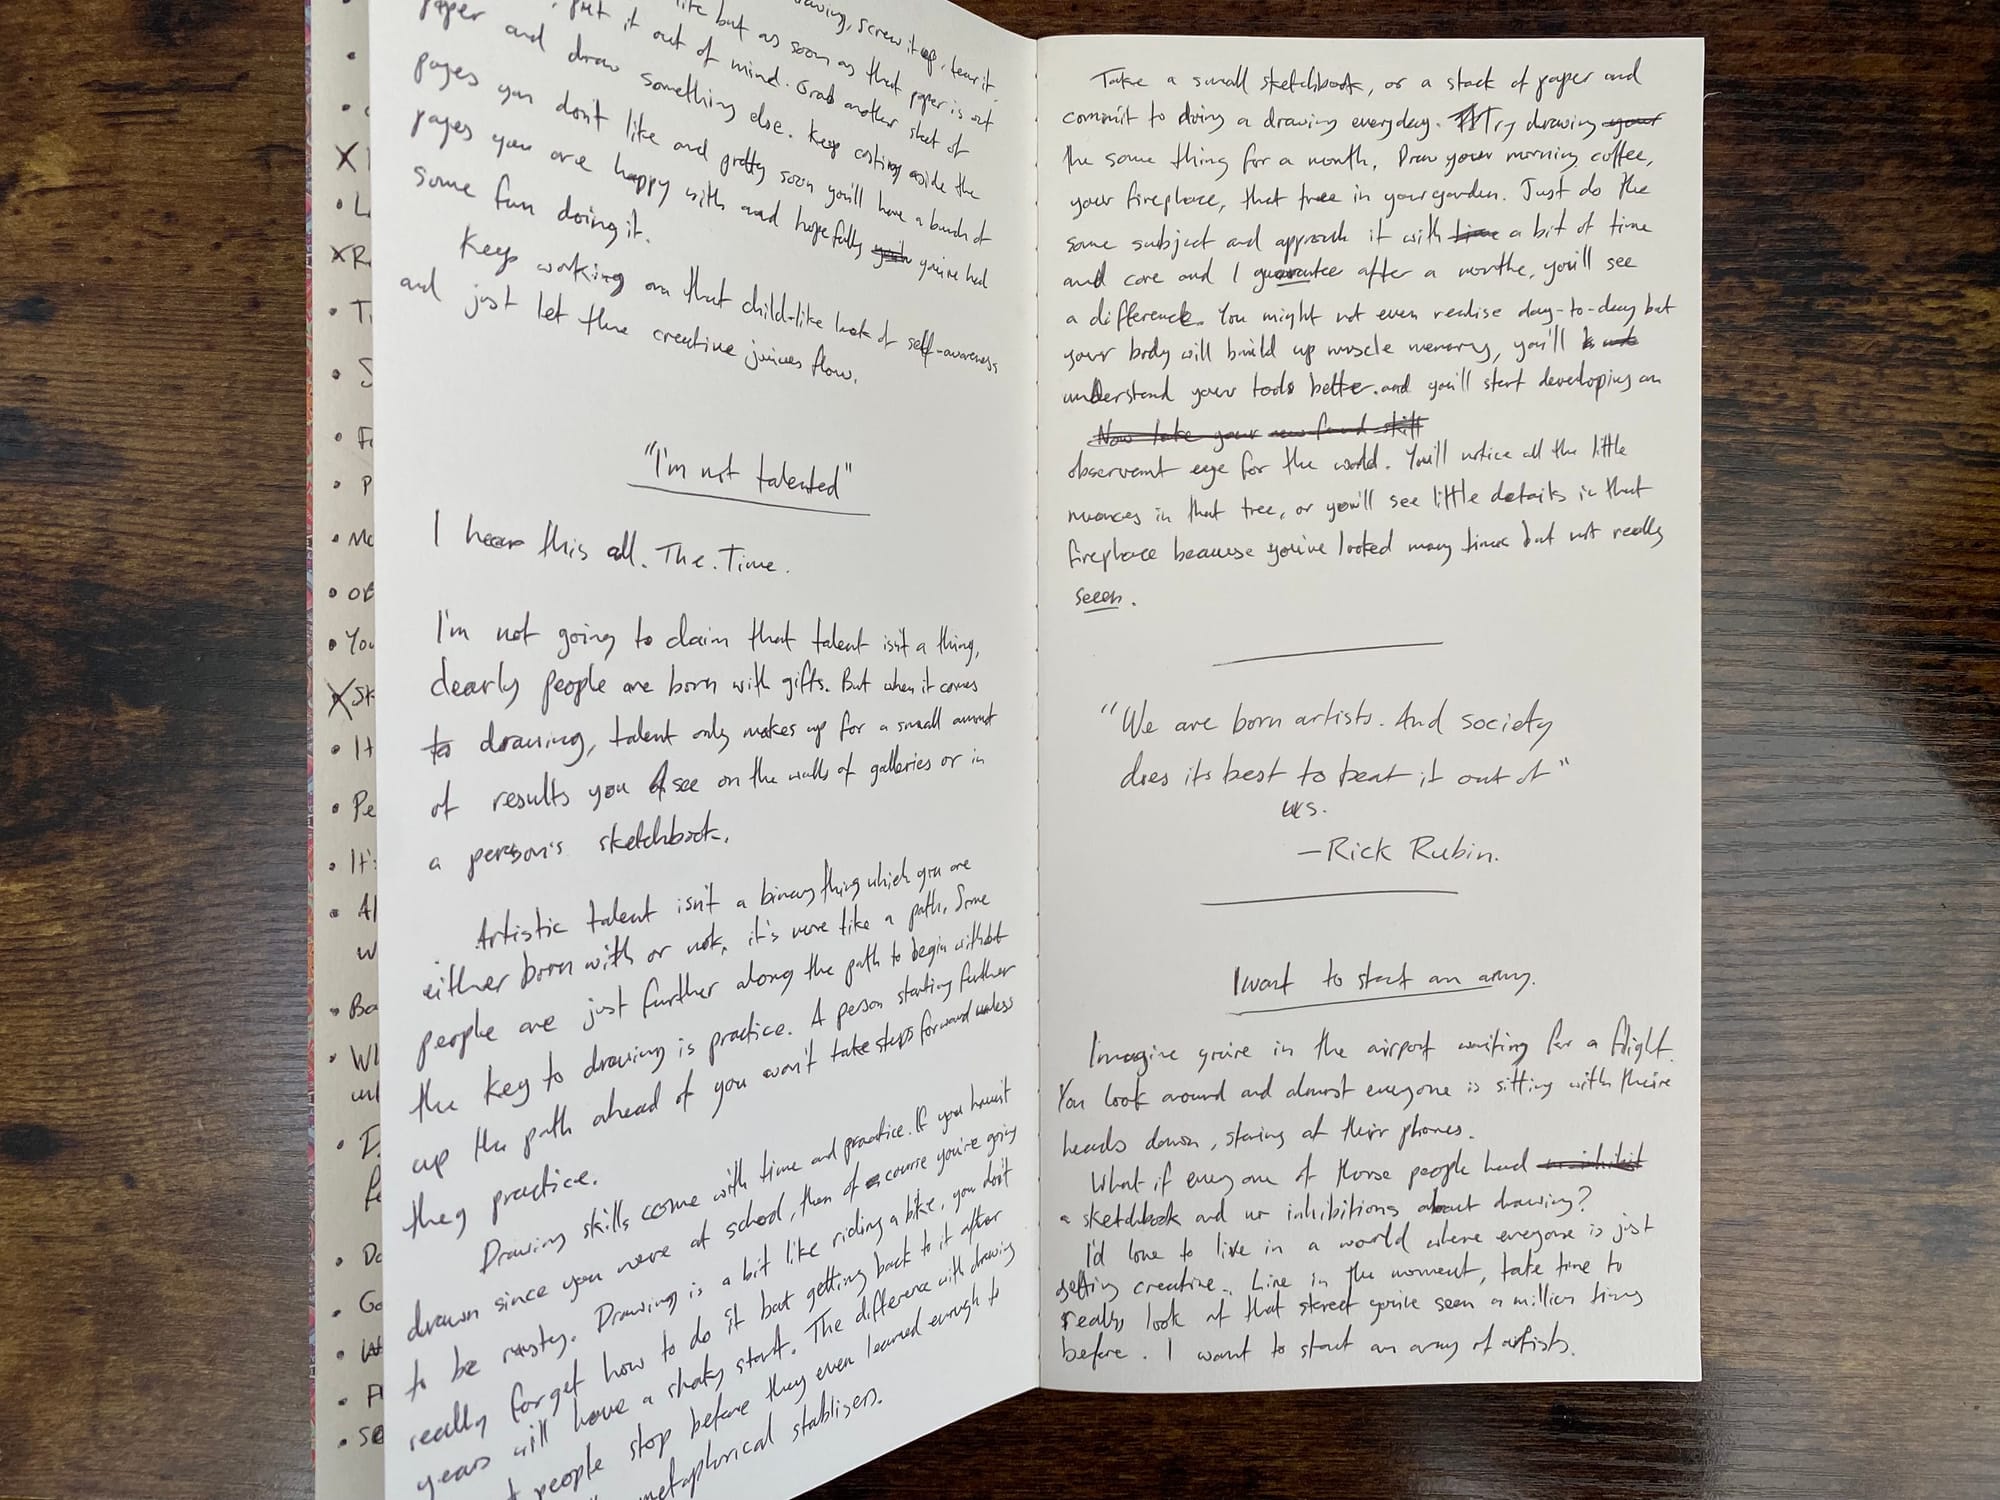 drawing, screw it up, tear it
but as soon as that paper is out
put it out of mind. Grab another sheet of
paper and draw something else. Keep casting aside the
pages you don't like and pretty soon you'll have a bunch of
pages you are happy with and hopefully you've had
some fun doing it.
Keep working on that child-like lack of self-awareness
and just let the creative juices flow.
"I'm not talented"
I hear this all. The. Time.
I'm not going to claim that talent isn't a thing,
clearly people are born with gifts. But when it comes
to drawing, talent only makes up for a small amount
of results you see on the walls of galleries or in
a person's sketchbook.
Artistic talent isn't a binary thing which you are
either born with or not, it's more like a path. Some
people are just further along the path to begin without
the key to drawing is practice. A person starting further
up the path ahead of you won't take steps forward unless
they practice.
Drawing skills come with time and practice. If you haven't
drawn since you were at school, then of course you're going
to be rusty. Drawing is a bit like riding a bike, you don't
really forget how to do it but getting back to it after
years will have a shaky start. The difference with drawing
people stop before they even learned enough to
metaphorical stablisers.
Take a small sketchbook, or a stack of paper and
commit to doing a drawing everyday. Try drawing your
the same thing for a month. Draw your morning coffee,
your fireplace, that tree in your garden. Just do the
same subject and approach it with time a bit of time
and care and I guarantee after a monthe, you'll see
a difference. You might not even realise day-to-day but
your body will build up muscle memory, you'll
understand your tools better. and you'll start developing an
Now take your new found skill
observent eye for the world. You'll notice all the little
nuances in that tree, or you'll see little details in that
fireplace because you've looked many times but not really
seeen.
"We are born artists. And society
does its best to beat it out of"
us.
—Rick Rubin.
I want to start an army.
Imagine you're in the airport waiting for a flight.
You look around and almost everyone is sitting with theire
heads down, staring at their phones.
What if every one of those people had
a sketchbook and no inhibitions about drawing?
I'd love to live in a world where everyone is just
getting creative. Live in the moment, take time to
really look at that street you've seen a million times
before. I want to start an army of artists.